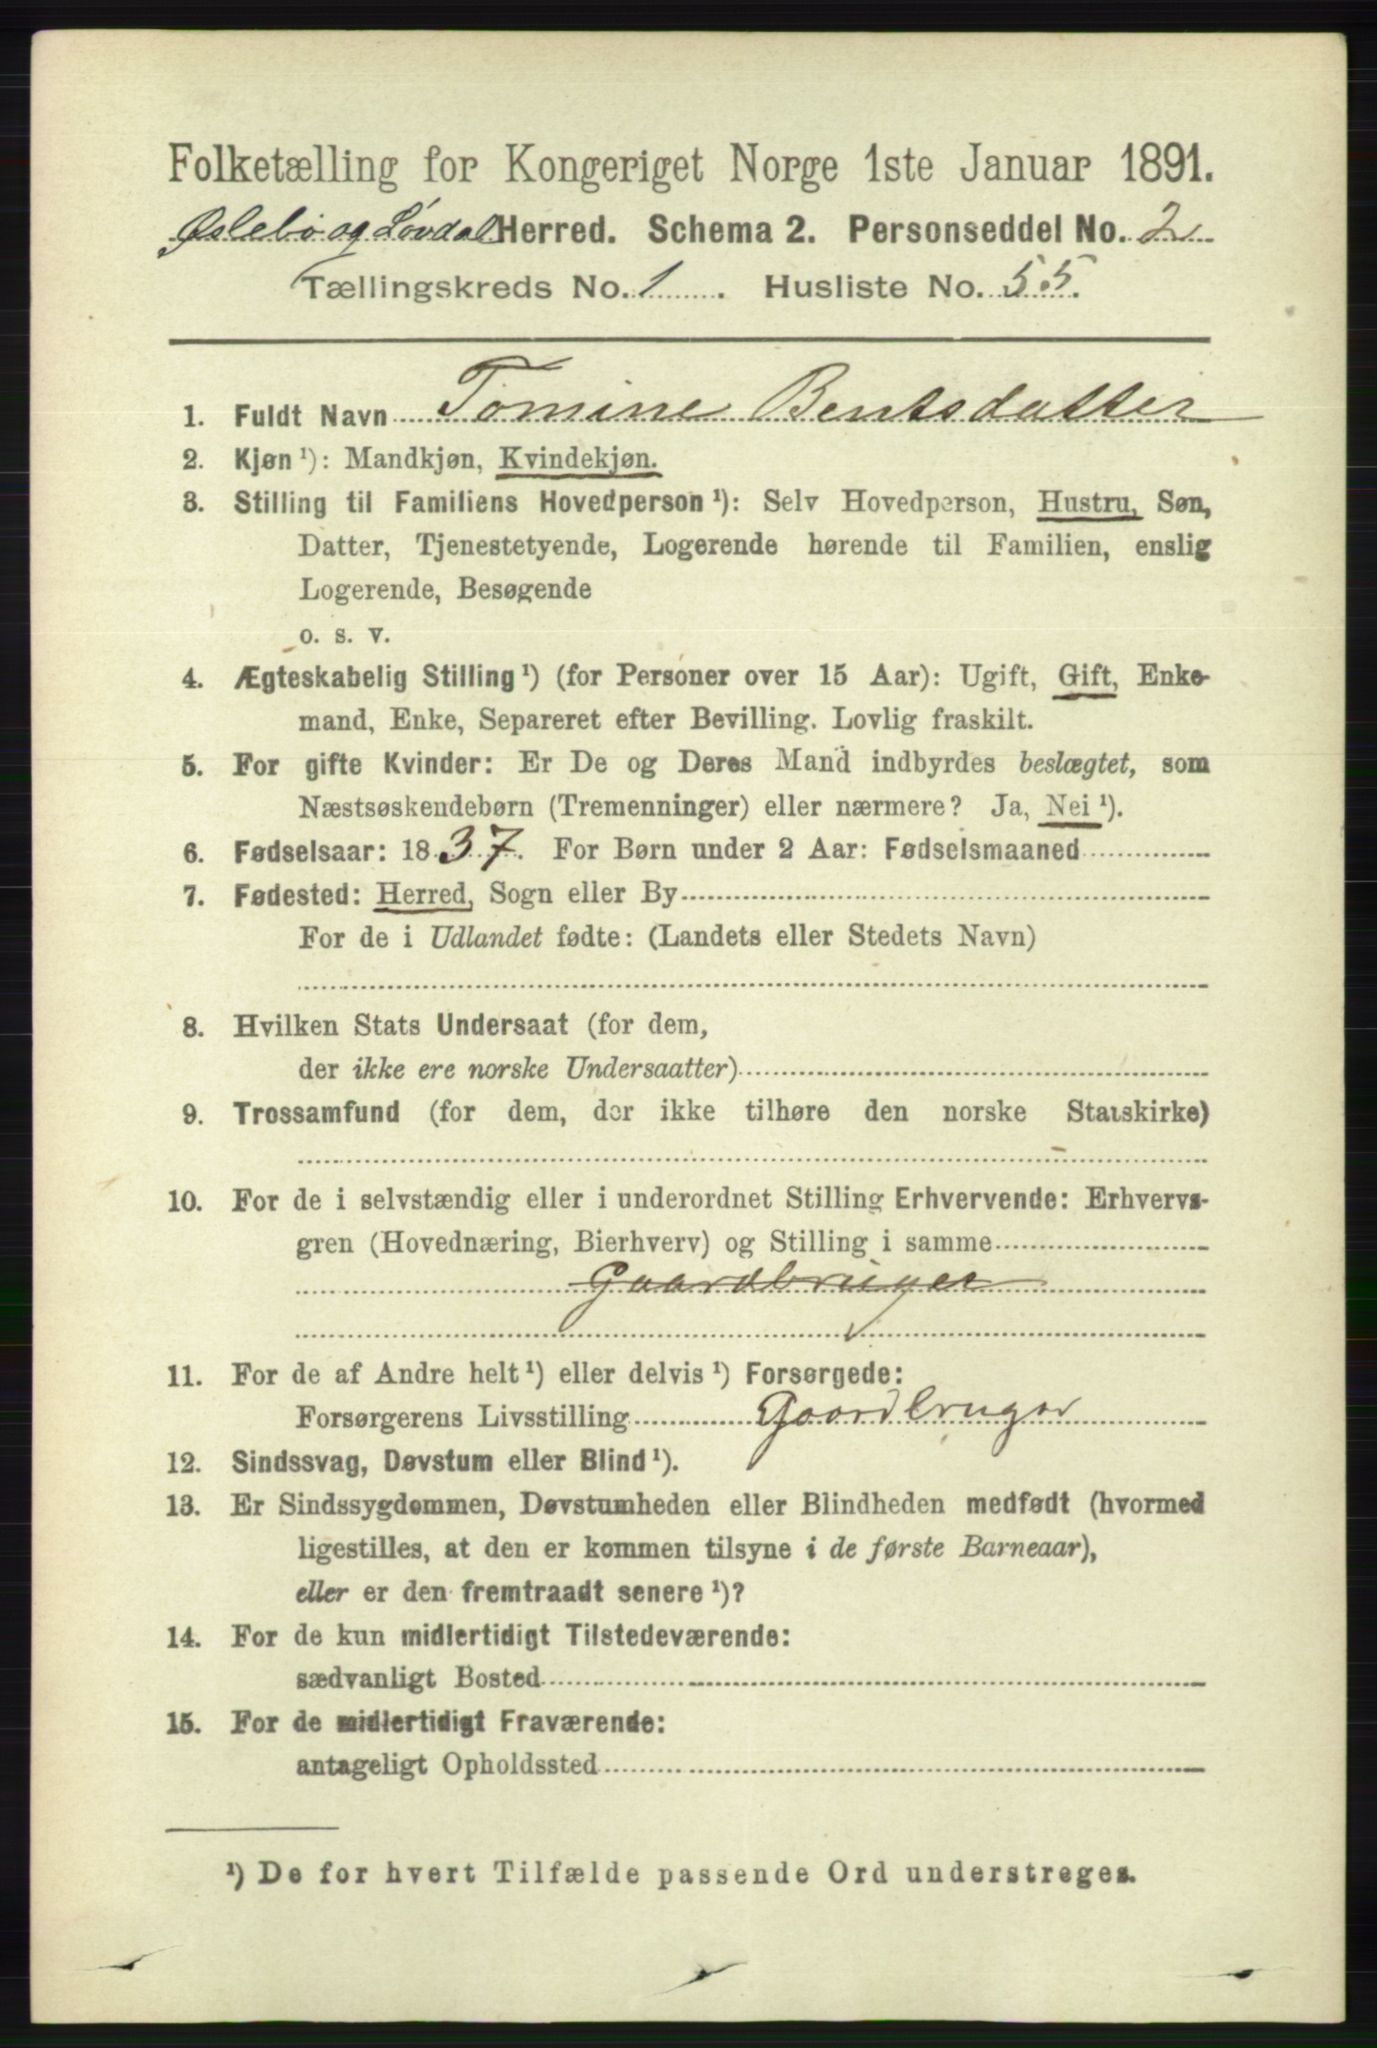 Folketælling for Kongeriget Norge 1ste Januar 1891.
Øslebø og Løvdal Herred. Schema 2. Personseddel No. 2
Tællingskreds No. 1. Husliste No. 55.
1. Fuldt Navn Tomine Bentsdatter
2. Kjøn¹): Mandkjøn, Kvindekjøn.
3. Stilling til Familiens Hovedperson¹): Selv Hovedperson, Hustru, Søn,
Datter, Tjenestetyende, Logerende hørende til Familien, enslig
Logerende, Besøgende
o. s. v.
4. Ægteskabelig Stilling¹) (for Personer over 15 Aar): Ugift, Gift, Enke-
mand, Enke, Separeret efter Bevilling. Lovlig fraskilt.
5. For gifte Kvinder: Er De og Deres Mand indbyrdes beslægtet, som
Næstsøskendebørn (Tremenninger) eller nærmere? Ja, Nei¹).
6. Fødselsaar: 1837. For Børn under 2 Aar: Fødselsmaaned
7. Fødested: Herred, Sogn eller By
For de i Udlandet fødte: (Landets eller Stedets Navn)
8. Hvilken Stats Undersaat (for dem,
der ikke ere norske Undersaatter)
9. Trossamfund (for dem, der ikke tilhøre den norske Statskirke)
10. For de i selvstændig eller i underordnet Stilling Erhvervende: Erhvervs-
gren (Hovednæring, Bierhverv) og Stilling i samme
Gaardbruger
11. For de af Andre helt¹) eller delvis¹) Forsørgede:
Forsørgerens Livsstilling Gaardbruger
12. Sindssvag, Døvstum eller Blind¹).
13. Er Sindssygdommen, Døvstumheden eller Blindheden medfødt (hvormed
ligestilles, at den er kommen tilsyne i de første Barneaar),
eller er den fremtraadt senere¹)?
14. For de kun midlertidigt Tilstedeværende:
sædvanligt Bosted
15. For de midlertidigt Fraværende:
antageligt Opholdssted
¹) De for hvert Tilfælde passende Ord understreges.